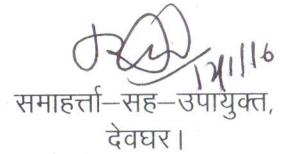 12/1/16
समाहर्त्ता-सह-उपायुक्त,
देवघर।